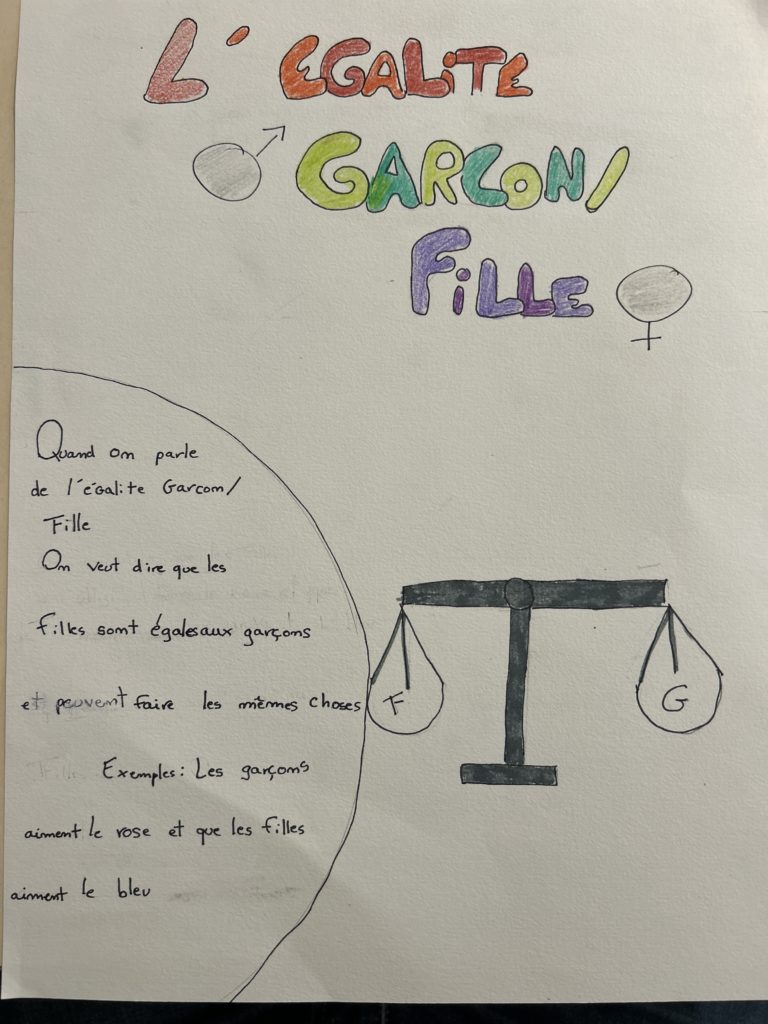 L'EGALITE
GARCON/
FiLLE
Quand on parle
de l'égalite Garcon/
Fille
On veut dire que les
filles sont égales aux garçons
et peuvent faire les mêmes choses
Exemples: Les garçons
aiment le rose et que les filles
aiment le bleu
F
G